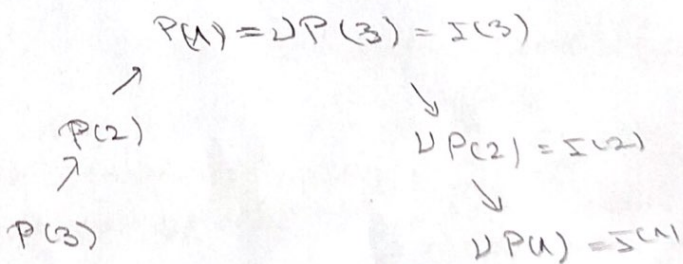 P(1) = νP(3) = I(3)
↗
↘
P(2)
νP(2) = I(2)
↗
↘
P(3)
νP(1) = I(1)